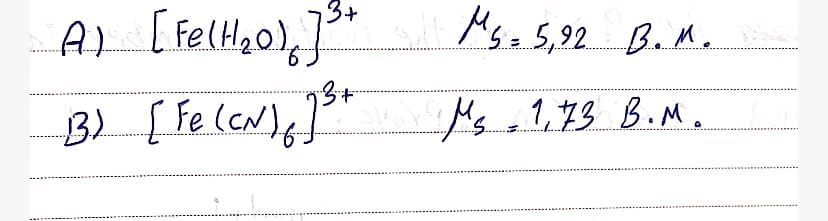 A) [Fe(H₂O)₆]³⁺ μs = 5,92 B.M.
B) [Fe(CN)₆]³⁺ μs = 1,73 B.M.